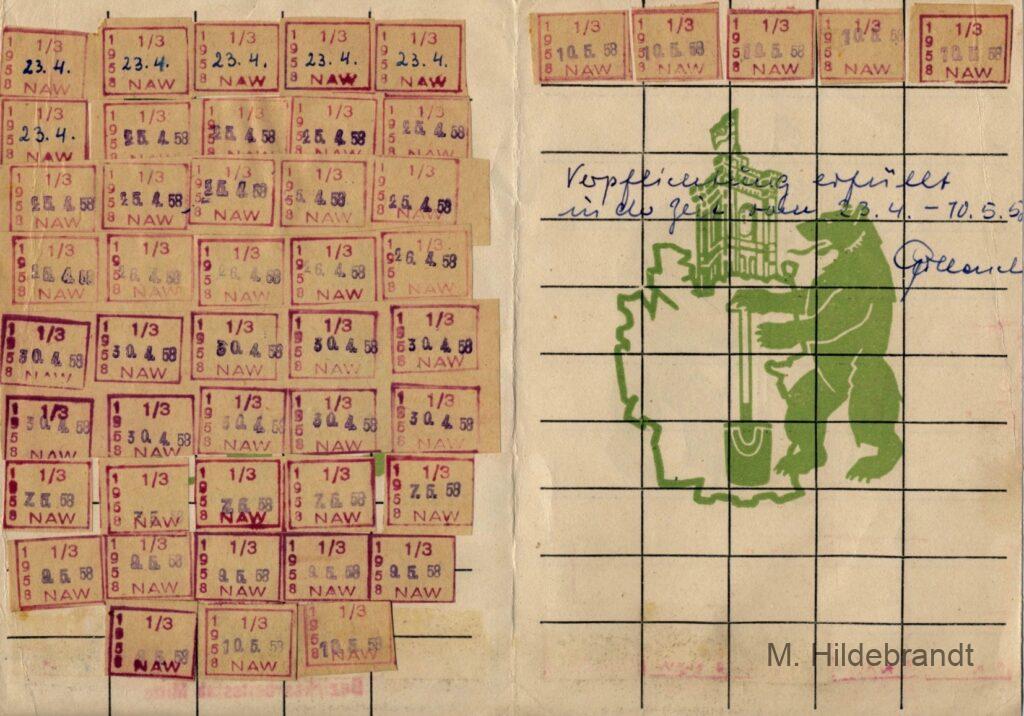 1958 1/3 23. 4. NAW
1958 1/3 23. 4. NAW
1958 1/3 23. 4. NAW
1958 1/3 23. 4. NAW
1958 1/3 23. 4. NAW
1958 1/3 23. 4. NAW
1958 1/3 25. 4. 58
1958 1/3 25. 4. 58
1958 1/3 25. 4. 58
1958 1/3 25. 4. 58
1958 1/3 25. 4. 58 NAW
1958 1/3 25. 4. 58 NAW
1958 1/3 25. 4. 58 NAW
1958 1/3 5. 4. 58 NAW
1958 1/3 25. 4. 58 NAW
1958 1/3 4. 58 NAW
1958 1/3 26. 4. 58 NAW
1958 1/3 26. 4. 58 NAW
1958 1/3 26. 4. 58 NAW
1958 1/3 26. 4. 58 NAW
1958 1/3 30. 4. 58 NAW
1958 1/3 30. 4. 58 NAW
1958 1/3 30. 4. 58 NAW
1958 1/3 30. 4. 58 NAW
1958 1/3 30. 4. 58 NAW
1958 1/3 30. 4. 58 NAW
1958 1/3 30. 4. 58 NAW
1958 1/3 30. 4. 58 NAW
1958 1/3 30. 4. 58 NAW
1958 1/3 30. 4. 58 NAW
1958 1/3 7. 5. 58 NAW
1958 1/3 7. 5. NAW
1958 1/3 7. 5. 58 NAW
1958 1/3 7. 5. 58 NAW
1958 1/3 7. 5. 58 NAW
1958 1/3 9. 5. 58 NAW
1958 1/3 9. 5. 58 NAW
1958 1/3 9. 5. 58 NAW
1958 1/3 9. 5. 58 NAW
1958 1/3 9. 5. 58 NAW
1958 1/3 NAW
1958 1/3 10. 5. 58 NAW
1958 1/3 10. 5. 58 NAW
1958 1/3 10. 5. 58 NAW
1958 1/3 10. 5. 58 NAW
1958 1/3 10. 5. 58 NAW
1958 1/3 10. 5. 58 NAW
1958 1/3 10. 5. 58 NAW
Verpflichtung erfüllt
in der Zeit vom 23. 4. – 10. 5. 5
M. Hildebrandt